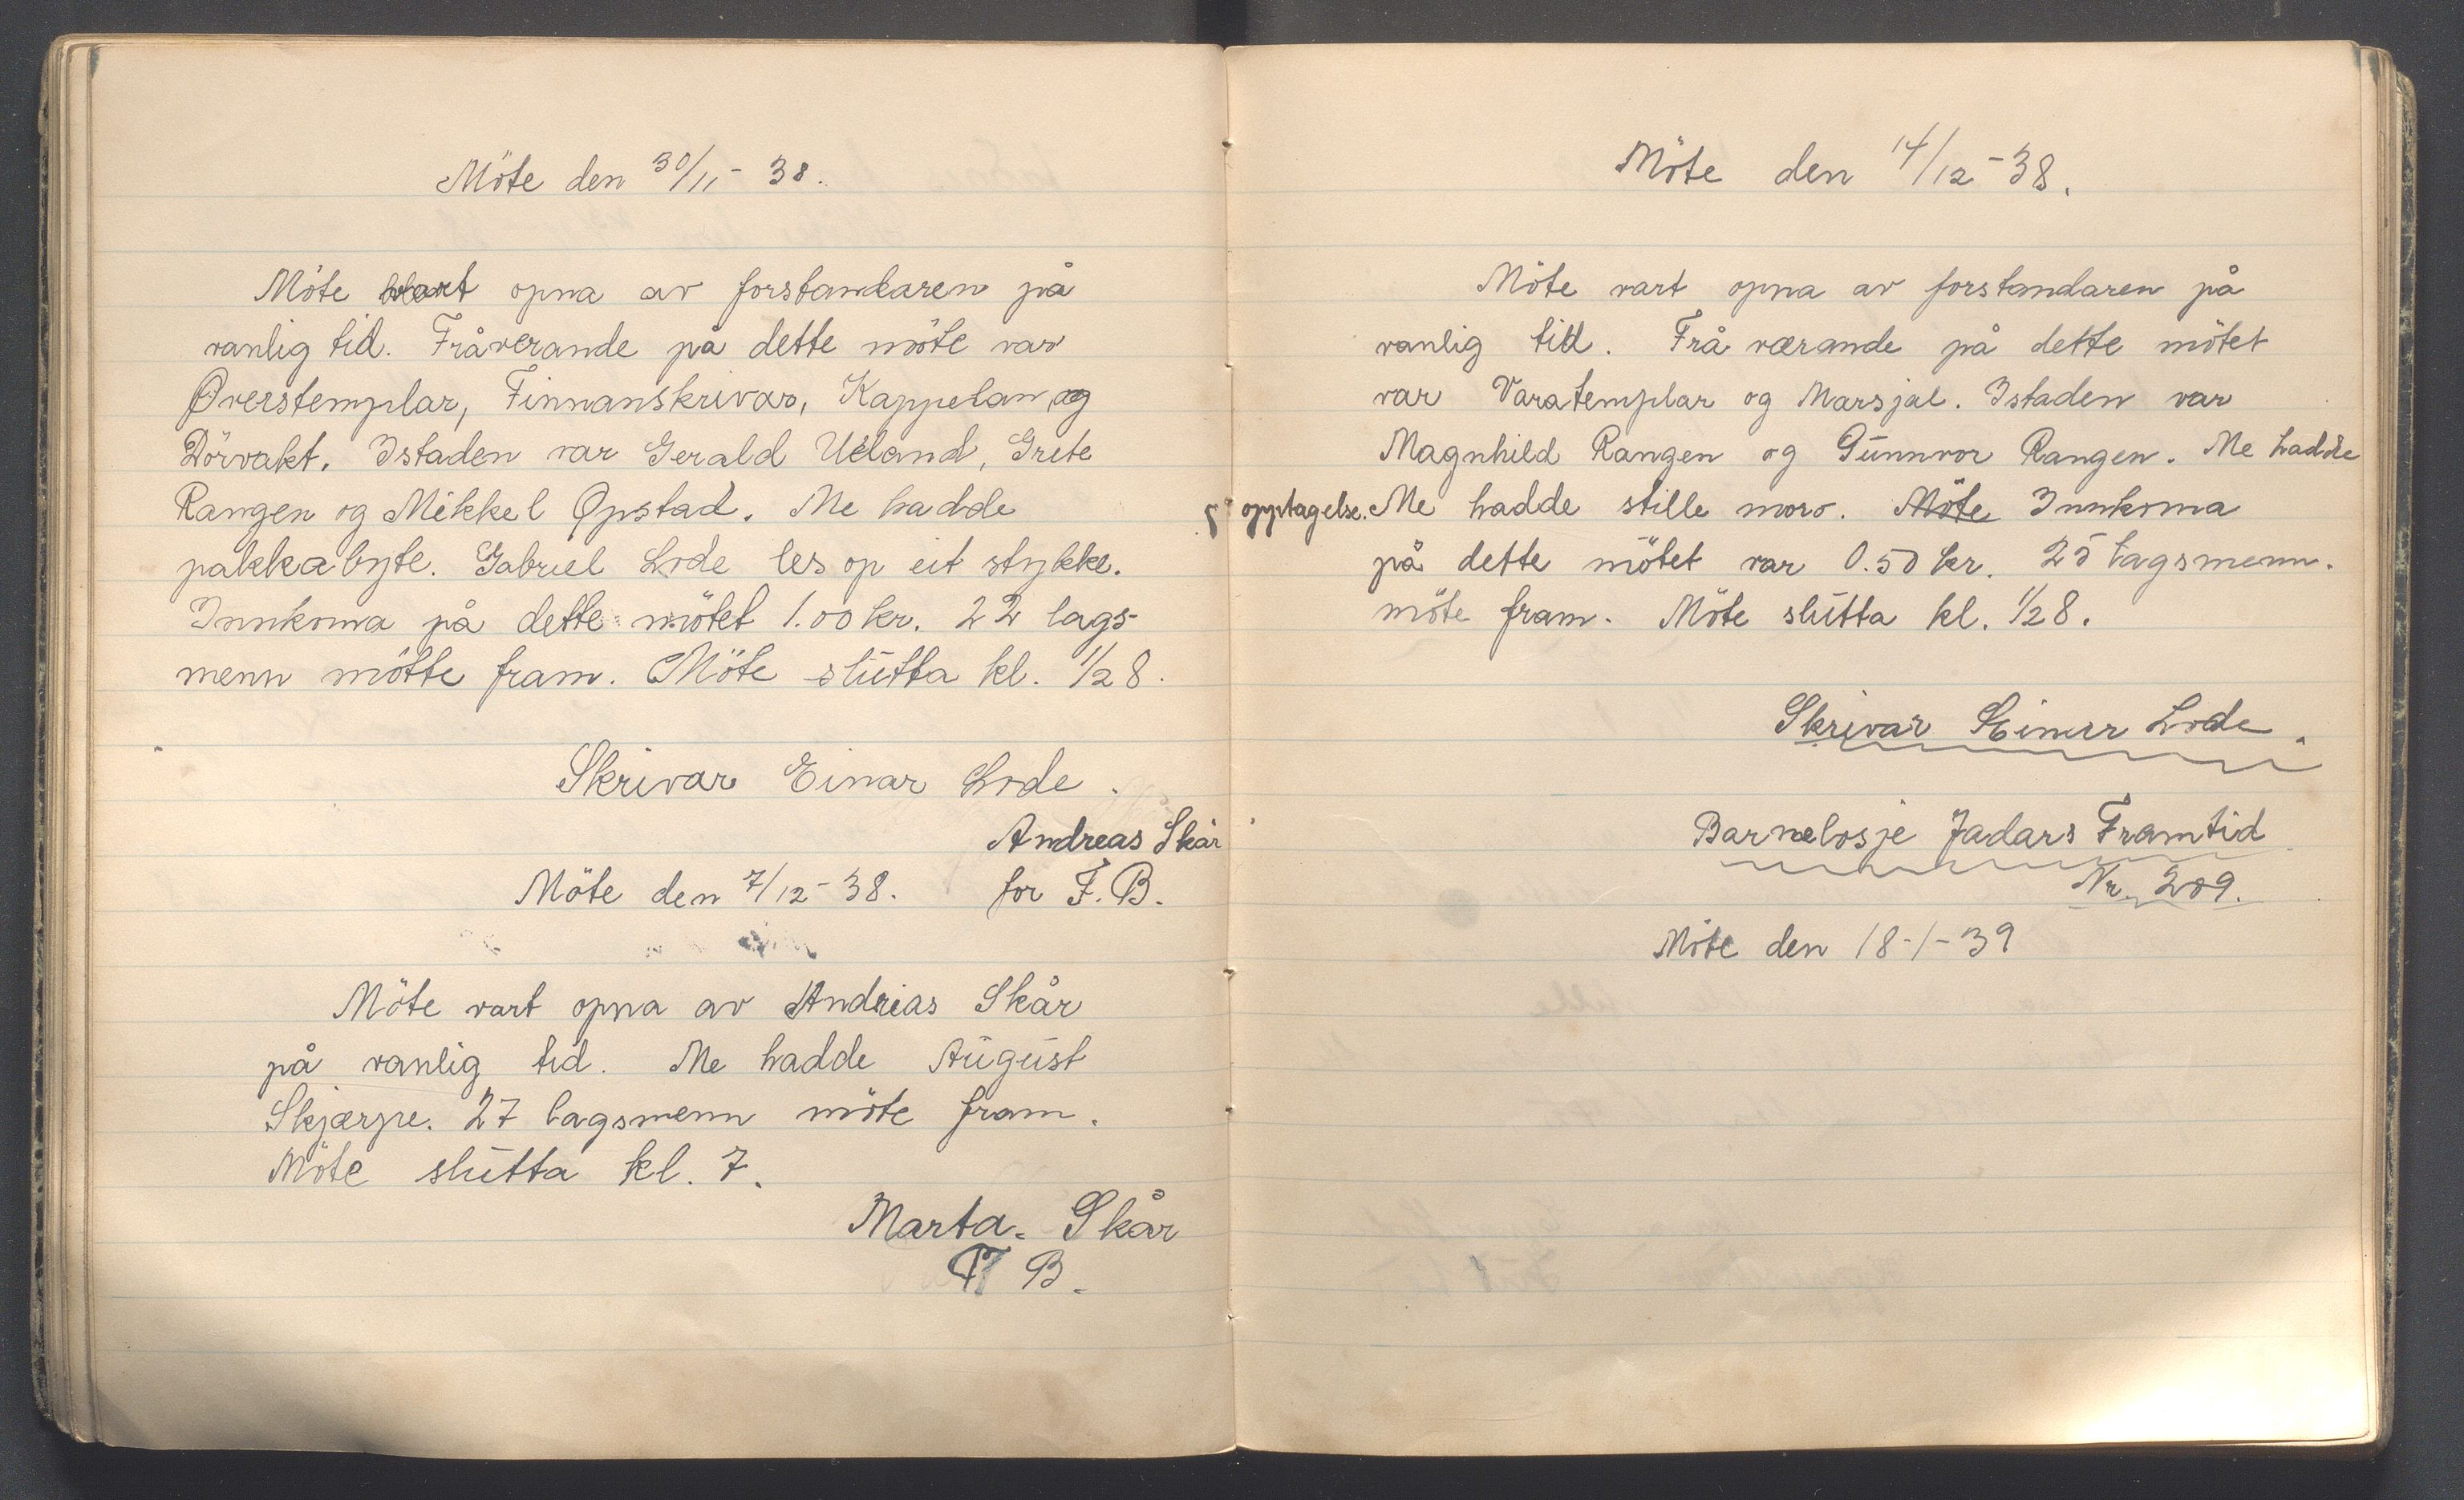 Möte den 30/11 - 38.
Möte vart opna av forstandaren på
vanlig tid. Fråverande på dette möte var
Øverstemplar, Finnanskrivar, Kappelan og
Dörvakt. Istaden var Gerald Ueland, Grete
Rangen og Mikkel Opstad. Me hadde
pakkabyte. Gabriel Lode les op eit stykke.
Innkoma på dette mötet 1.00 kr. 22 lags-
menn mötte fram. Möte slutta kl. 1/2 8.
Skrivar Einar Lode.
Andreas Skår
for F.B.
Möte den 7/12 - 38.
Möte vart opna av Andreas Skår
på vanlig tid. Me hadde August
Skjærpe. 27 lagsmenn möte fram.
Möte slutta kl. 7.
Marta Skår
F B.
Möte den 14/12 - 38.
Möte vart opna av forstandaren på
vanlig tid. Frå værande på dette mötet
var Varatemplar og Marsjal. Istaden var
Magnhild Rangen og Gunnvor Rangen. Me hadde
5 opptagelse. Me hadde stille moro. Möte Innkoma
på dette mötet var 0.50 kr. 25 lagsmenn.
möte fram. Möte slutta kl. 1/2 8.
Skrivar Einar Lode.
Barnelosje Jadars Framtid
Nr. 209.
Möte den 18-1-39